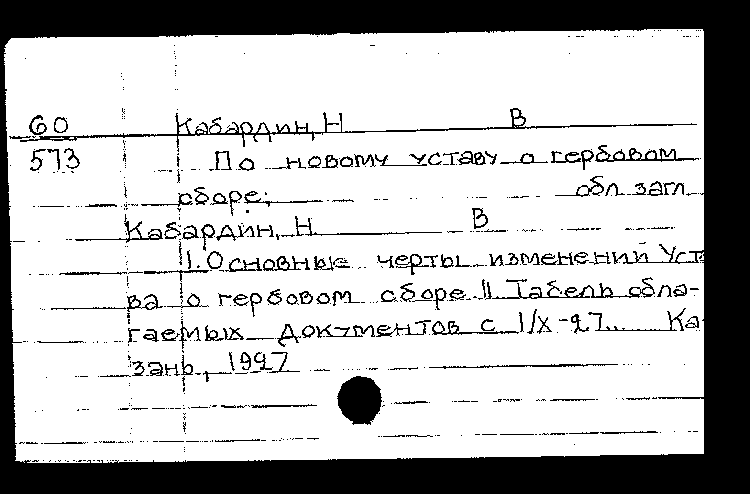 60 Кабардин, Н В
573 По новому уставу о гербовом
сборе; обл загл
Кабардин, Н В
I. Основные черты изменений Уста
ва о гербовом сборе II Табель обла-
гаемых документов с 1/X-27.. Ка-
зань, 1927